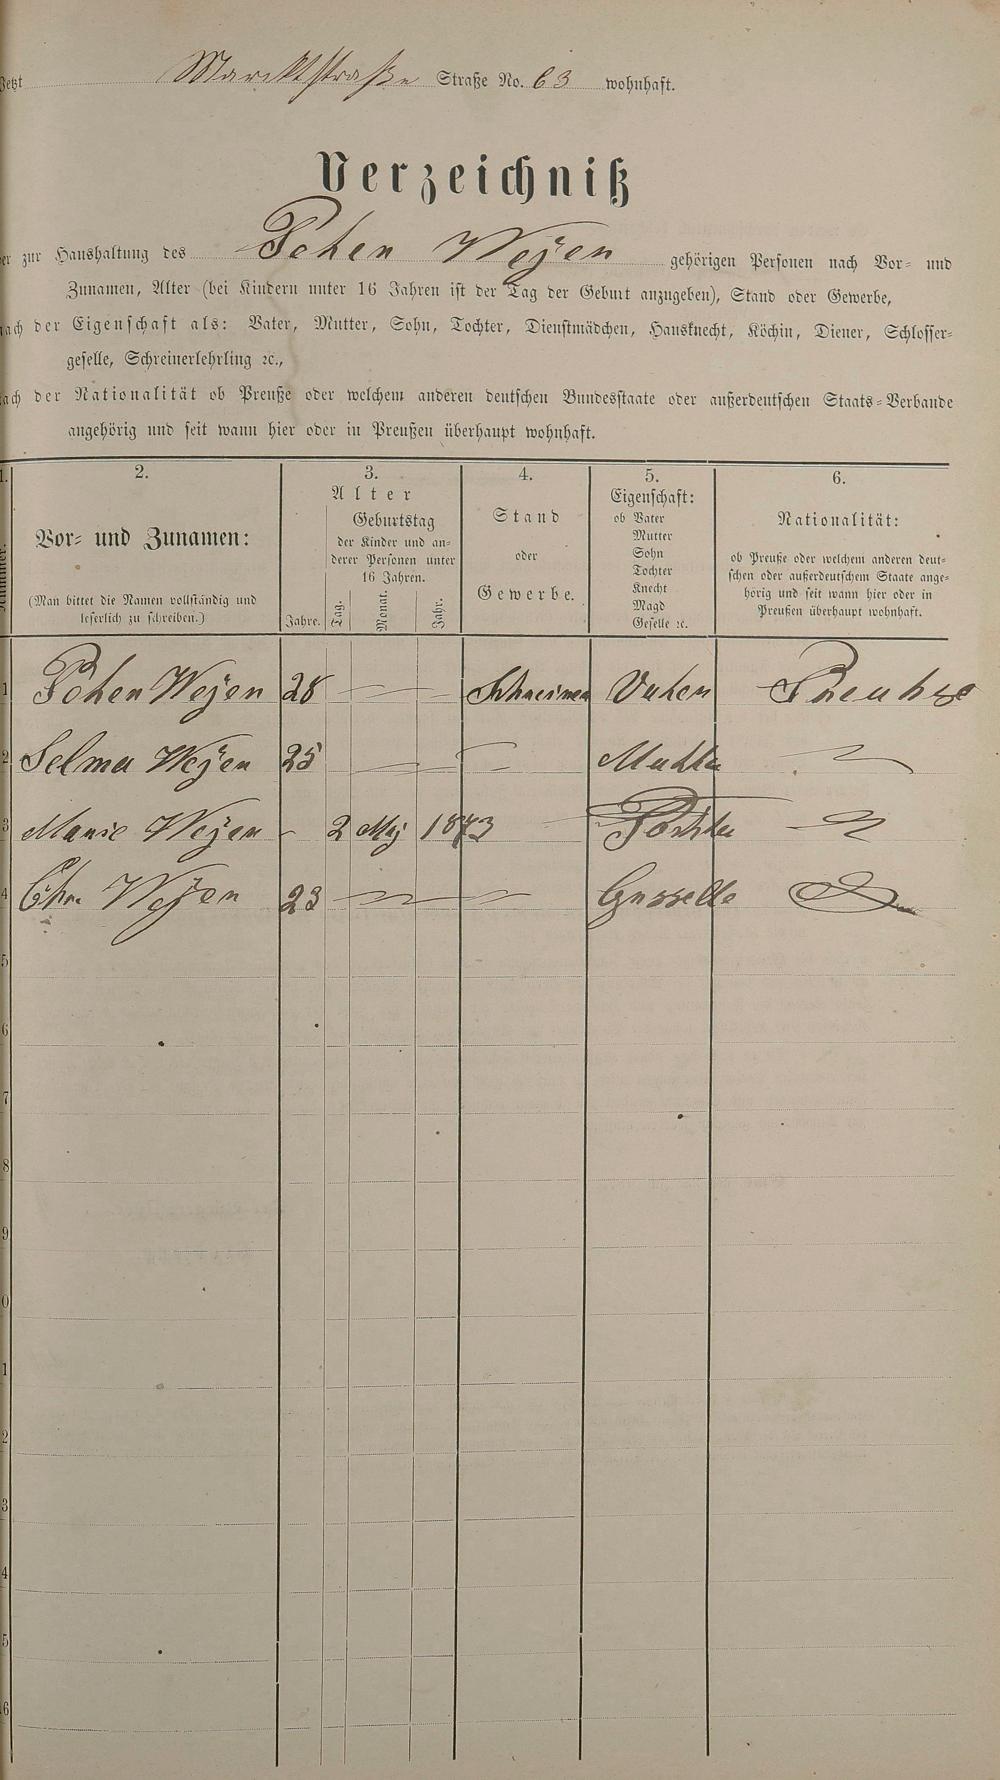 Jetzt Marcktstraße Straße No. 63 wohnhaft.
Verzeichniß
der zur Haushaltung des Peter Weyer gehörigen Personen nach Vor- und
Zunamen, Alter (bei Kindern unter 16 Jahren ist der Tag der Geburt anzugeben), Stand oder Gewerbe,
nach der Eigenschaft als: Vater, Mutter, Sohn, Tochter, Dienstmädchen, Hausknecht, Köchin, Diener, Schlosser-
geselle, Schreinerlehrling ꝛc.,
nach der Nationalität ob Preuße oder welchem anderen deutschen Bundesstaate oder außerdeutschen Staats-Verbande
angehörig und seit wann hier oder in Preußen überhaupt wohnhaft.
1. 2. 3. 4. 5. 6.
Nummer.
Vor- und Zunamen:
(Man bittet die Namen vollständig und
leserlich zu schreiben.)
Alter
Jahre.
Geburtstag
der Kinder und an-
derer Personen unter
16 Jahren.
Tag. Monat. Jahr.
Stand
oder
Gewerbe.
Eigenschaft:
ob Vater
Mutter
Sohn
Tochter
Knecht
Magd
Geselle ꝛc.
Nationalität:
ob Preuße oder welchem anderen deut-
schen oder außerdeutschem Staate ange-
hörig und seit wann hier oder in
Preußen überhaupt wohnhaft.
1 Peter Weyer 28 — Schreiner Vater Preuhse
2 Selma Weyer 25 — Mutter
3 Marie Weyer - 2 Mej 1873 Tochter
4 Chr. Weyer 23 — Gesselle
5
6
7
8
9
0
1
2
3
4
5
6